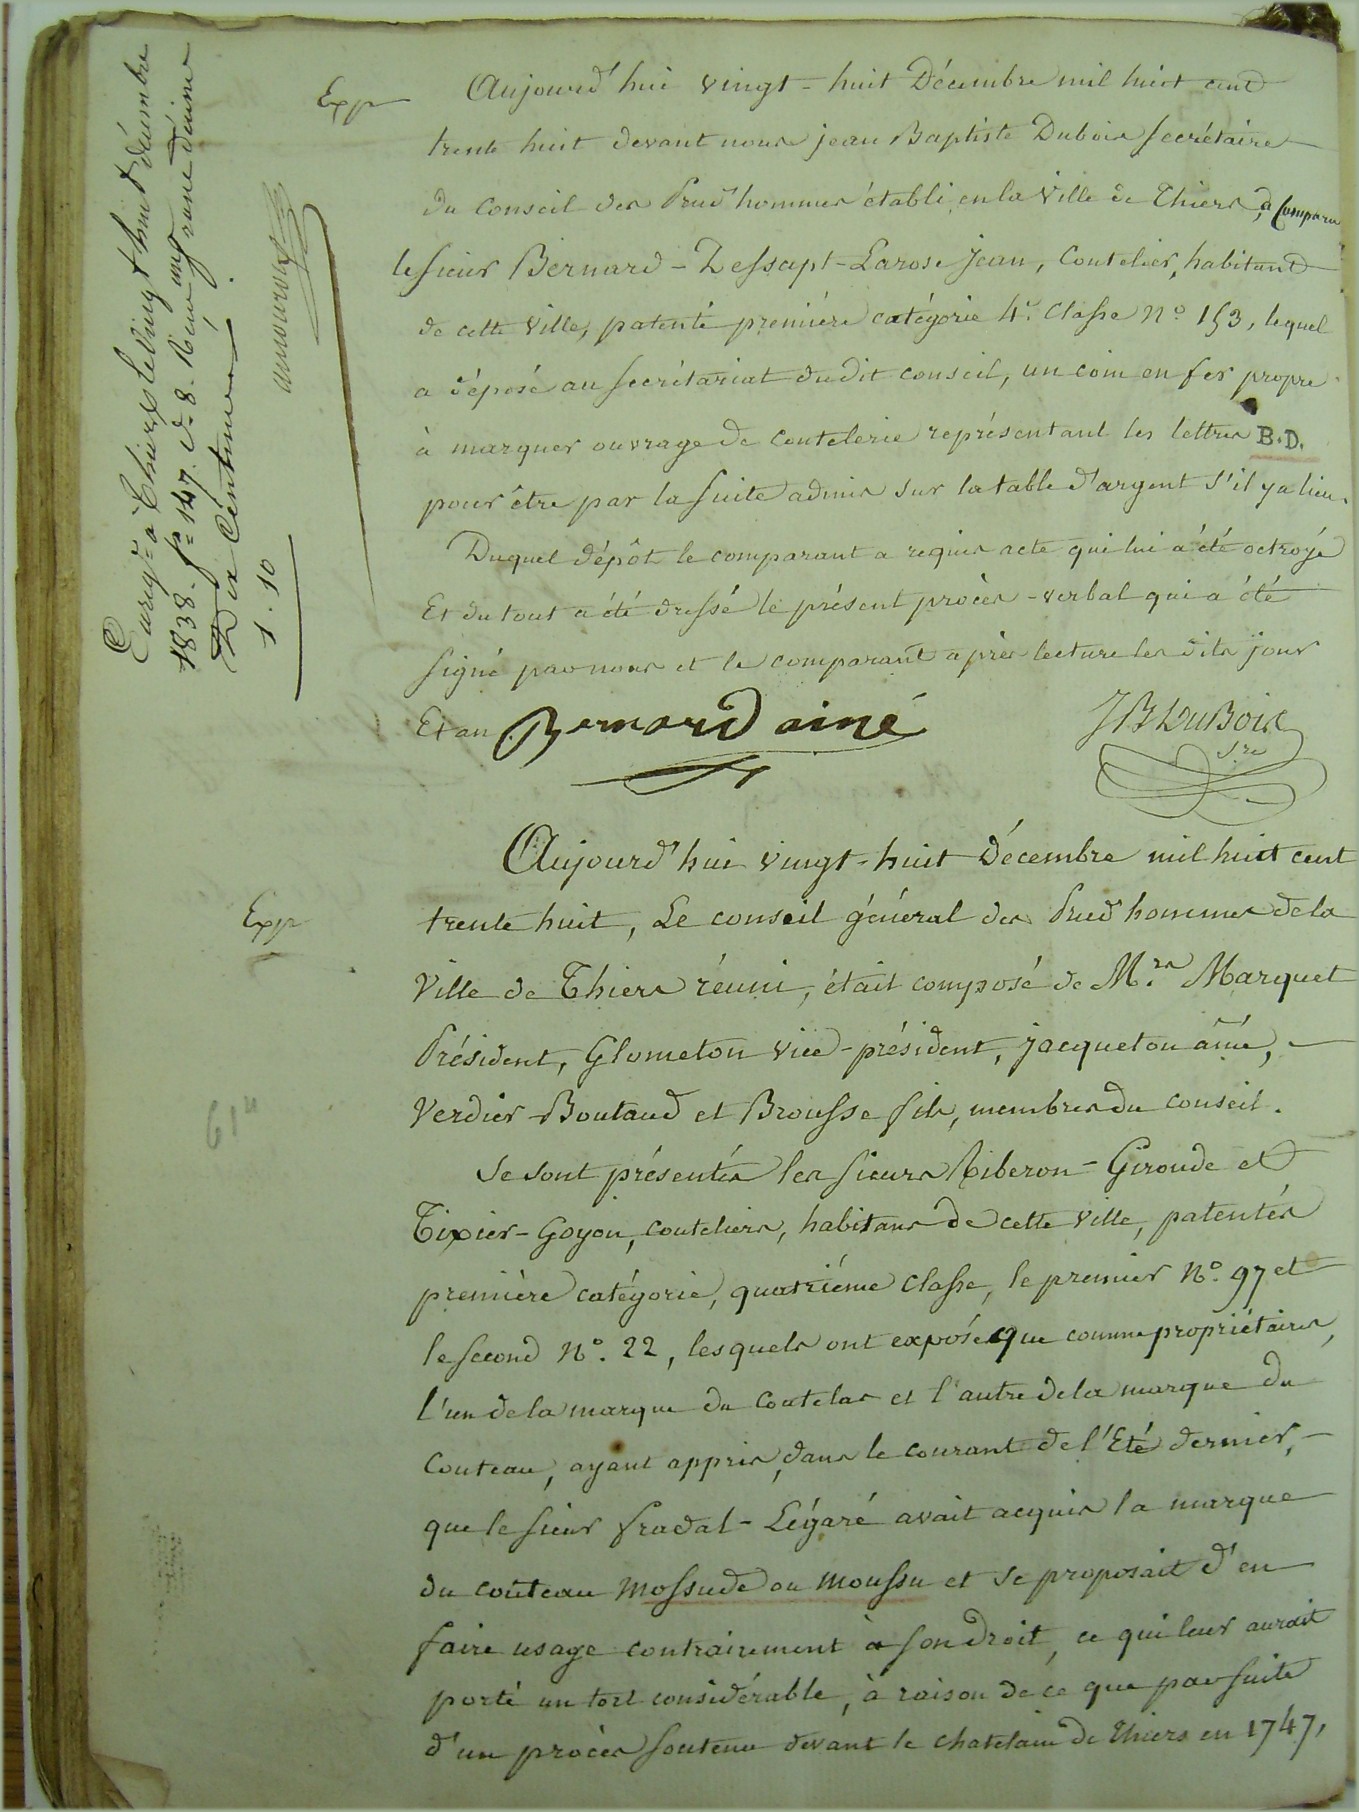 Enreg.é à Thiers le vingt huit décembre
1838. f° 147. v° 8. Reçu un franc décime
Dix Centimes
1.10
Exp
Aujourd'hui vingt-huit Décembre mil huit cent
trente huit devant nous jean Baptiste Dubois secrétaire
du Conseil des Prud'hommes établi en la Ville de Thiers, a Comparu
le sieur Bernard-Dessapt-Larose Jean, Coutelier, habitant
de cette Ville, patenté première catégorie 4e. Classe N° 153, lequel
a déposé au secrétariat dudit conseil, un coin en fer propre
à marquer ouvrage de coutelerie représentant les lettres B.D.
pour être par la suite admis sur la table d'argent s'il y a lieu.
Duquel dépôt le comparant a requis acte qui lui a été octroyé
Et du tout a été dressé le présent procès-verbal qui a été
signé par nous et le comparant après lecture les dits jour
Et an Bernard ainé
JB DuBois
Sre
Exp
Aujourd'hui vingt-huit Décembre mil huit cent
trente huit, Le conseil général des Prud'hommes de la
Ville de Thiers réuni, était composé de M.rs Marquet
Président, Glometon vice-président, jacqueton ainé,
Verdier-Boutaud et Brousse fils, membres du conseil.
61
Se sont présentés les sieurs Riberon-Gironde et
Tixier-Goyon, couteliers, habitans de cette ville, patentés
première catégorie, quatriéme classe, le premier N°. 97 et
le second N°. 22, lesquels ont exposés que comme propriétaires,
l'un de la marque du Coutelas et l'autre de la marque du
Couteau, ayant appris, dans le courant de l'Eté dernier,
que le sieur fradal-Légaré avait acquis la marque
du couteau Mossude ou Moussu et se proposait d'en
faire usage contrairement à son droit, ce qui leur aurait
porté un tort considérable, à raison de ce que par suite
d'un procès soutenu devant le chatelain de Thiers en 1747,